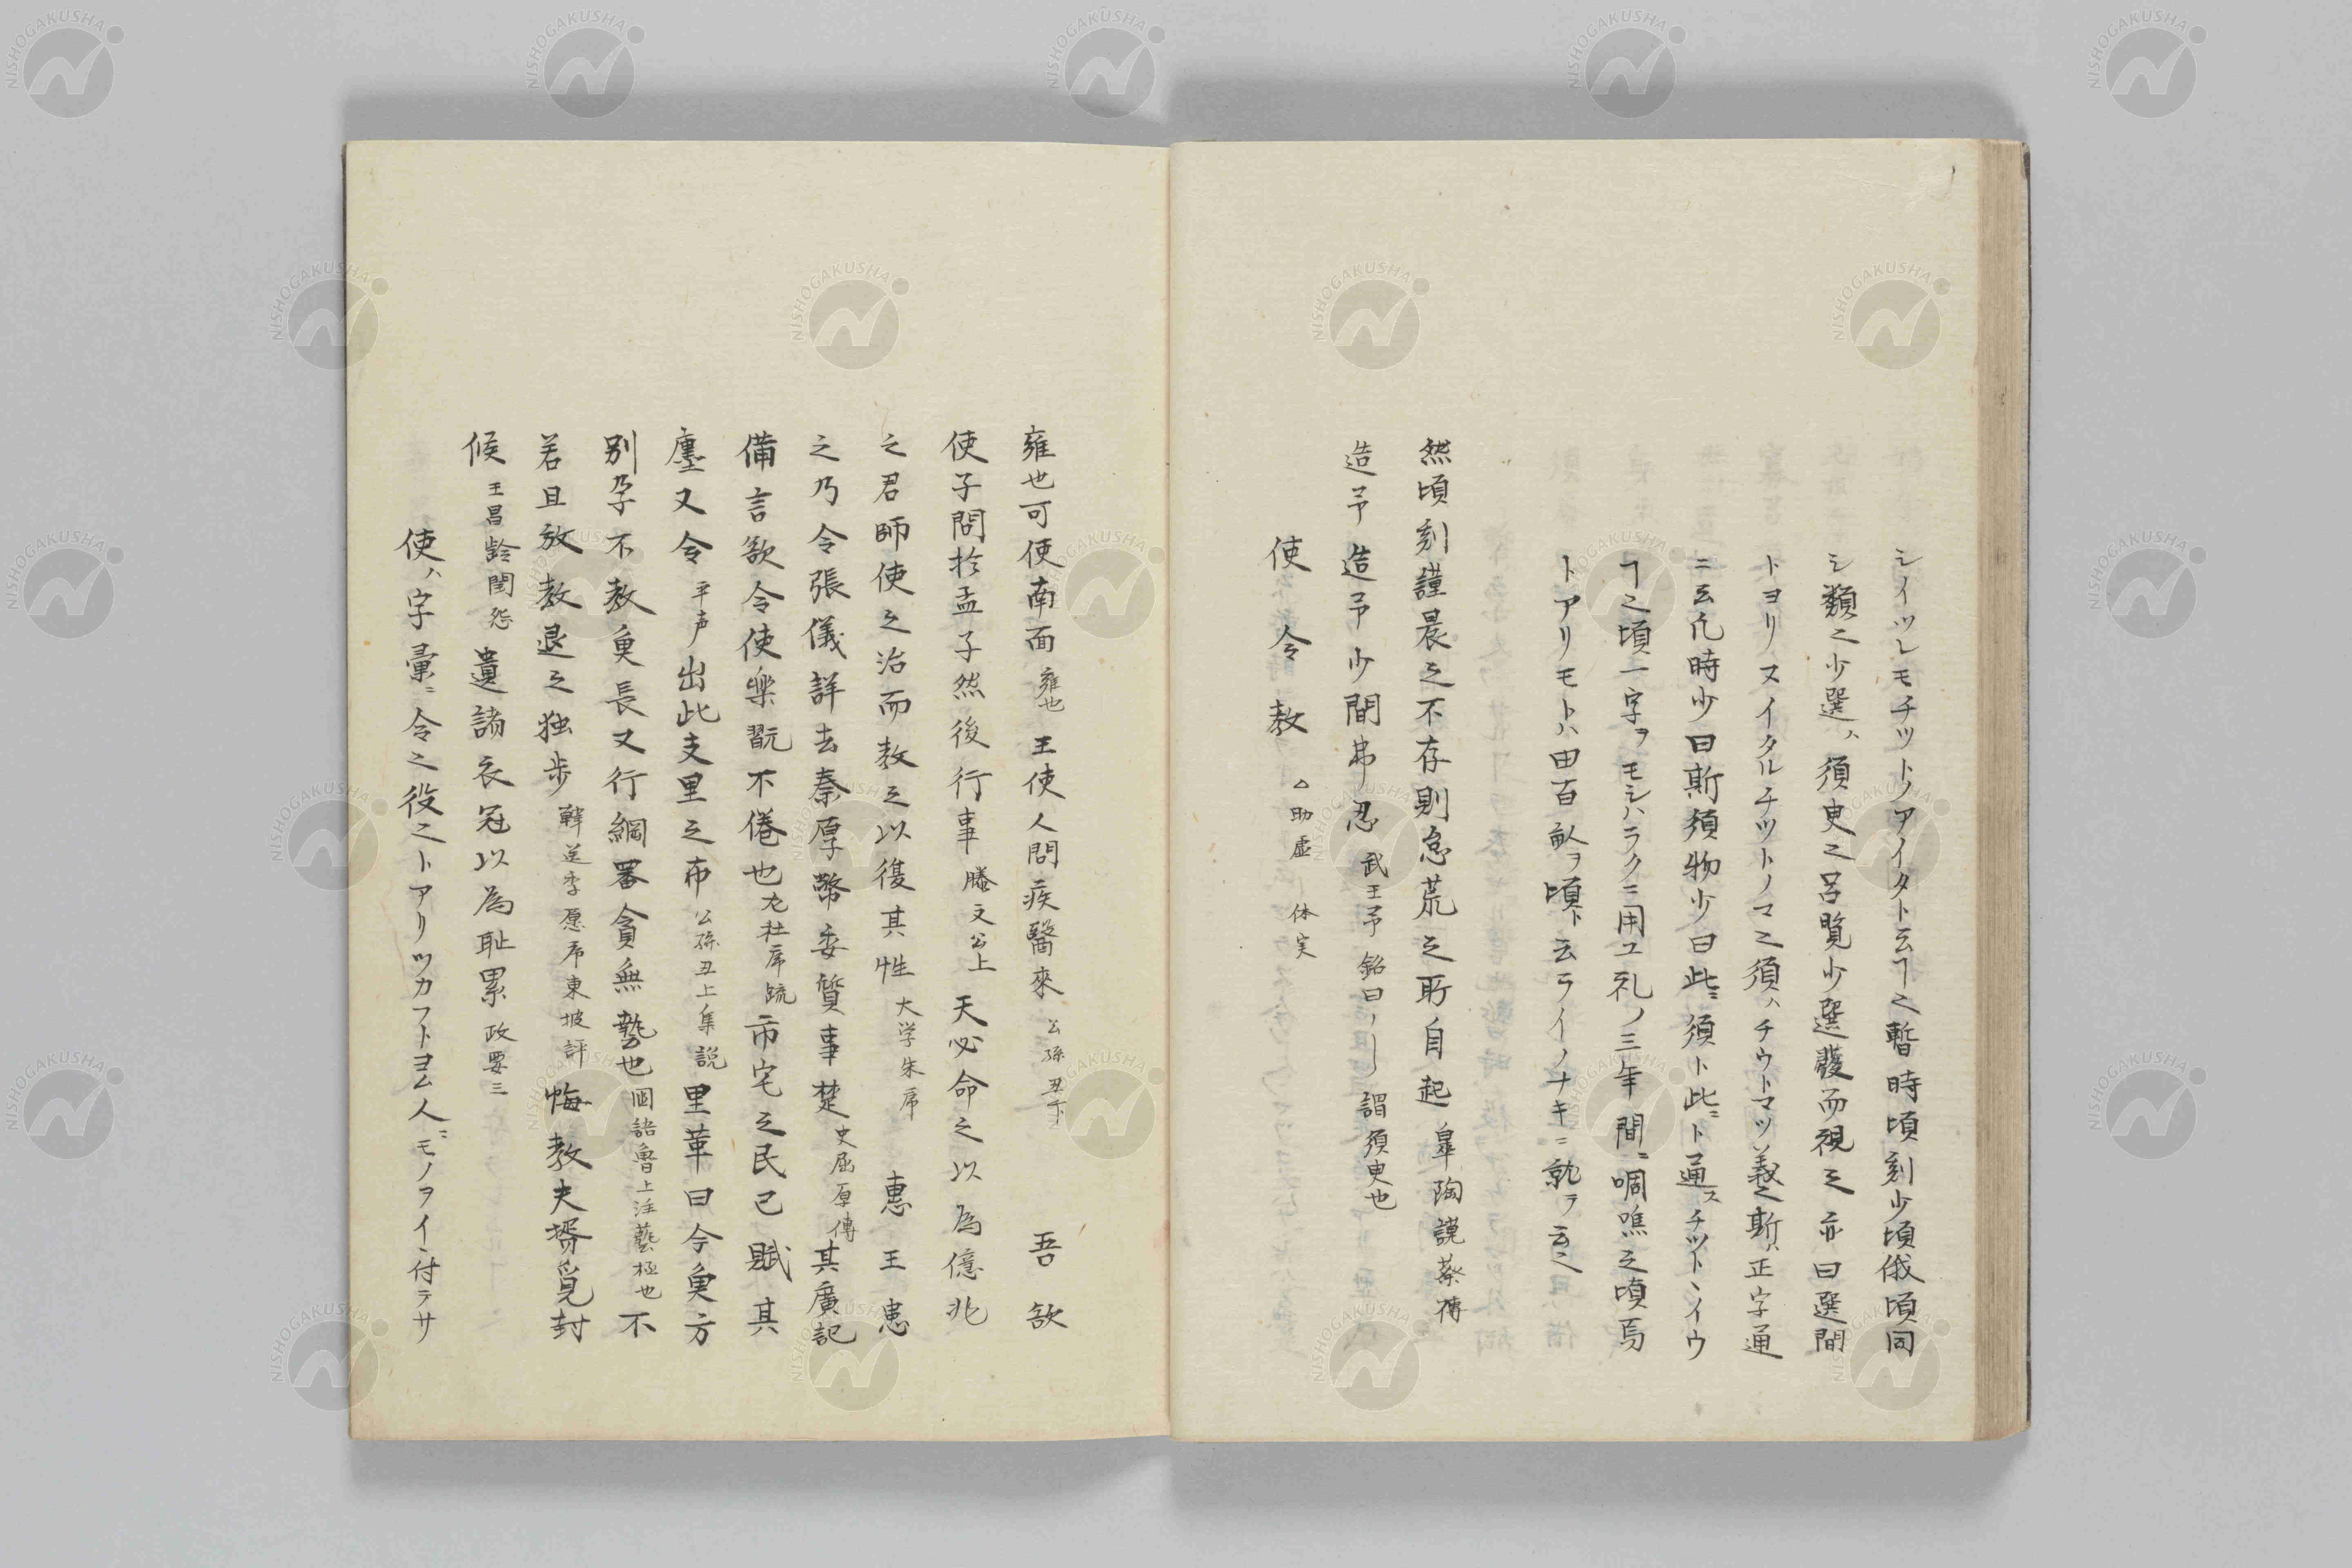 シイツレモチツトノアイタト云ヿ之暫時頃刻少頃俄頃同
シ類之少選ハ須臾之呂覧少選發而視之亦曰選間
トヨリヌイタルチツトノマ之須ハチウトマツ義之斯ハ正字通
ニ云凡時少曰斯須物少曰此ニ須ト此ニト通スチツトミイウ
ヿ之頃一字ヲモシハラクニ用ユ礼ノ三年間ニ啁噍之頃焉
トアリモトハ田百畝ヲ頃ト云ライノナキニ就テ言之
然頃刻謹晨之不存則怠荒之所自起 皐陶謨蔡傳
造予造予少間弗忍 武王予銘曰ハ〡謂須臾也
使 令 教 △助虚 体実
雍也可使南面 雍也 王使人問疾醫來 公孫丑下 吾欲
使子問於孟子然後行事 滕文公上 天必命之以為億兆
之君師使之治而教之以復其性 大学朱序 惠王患
之乃令張儀詳去秦厚幣委質事楚 史屈原傳 其廣記
備言欲令使樂翫不倦也 左杜序疏 市宅之民已賦其
廛又令 平声 出此夫里之布 公孫丑上集説 里革曰今魚方
別孕不教魚長又行網罟貪無藝也 國語魯上注藝極也 不
若且放教退之独歩 韓送李愿序東坡評 悔教夫壻覓封
候 王昌齢閨怨 遺諸衣冠以為恥累 政要三
使ハ字彙ニ令之役之トアリツカフトヨム人ニモノヲイヽ付テサ